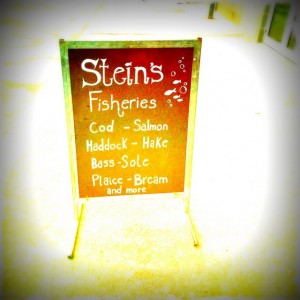 Stein's
Fisheries
Cod - Salmon
Haddock - Hake
Bass - Sole
Plaice - Bream
and more